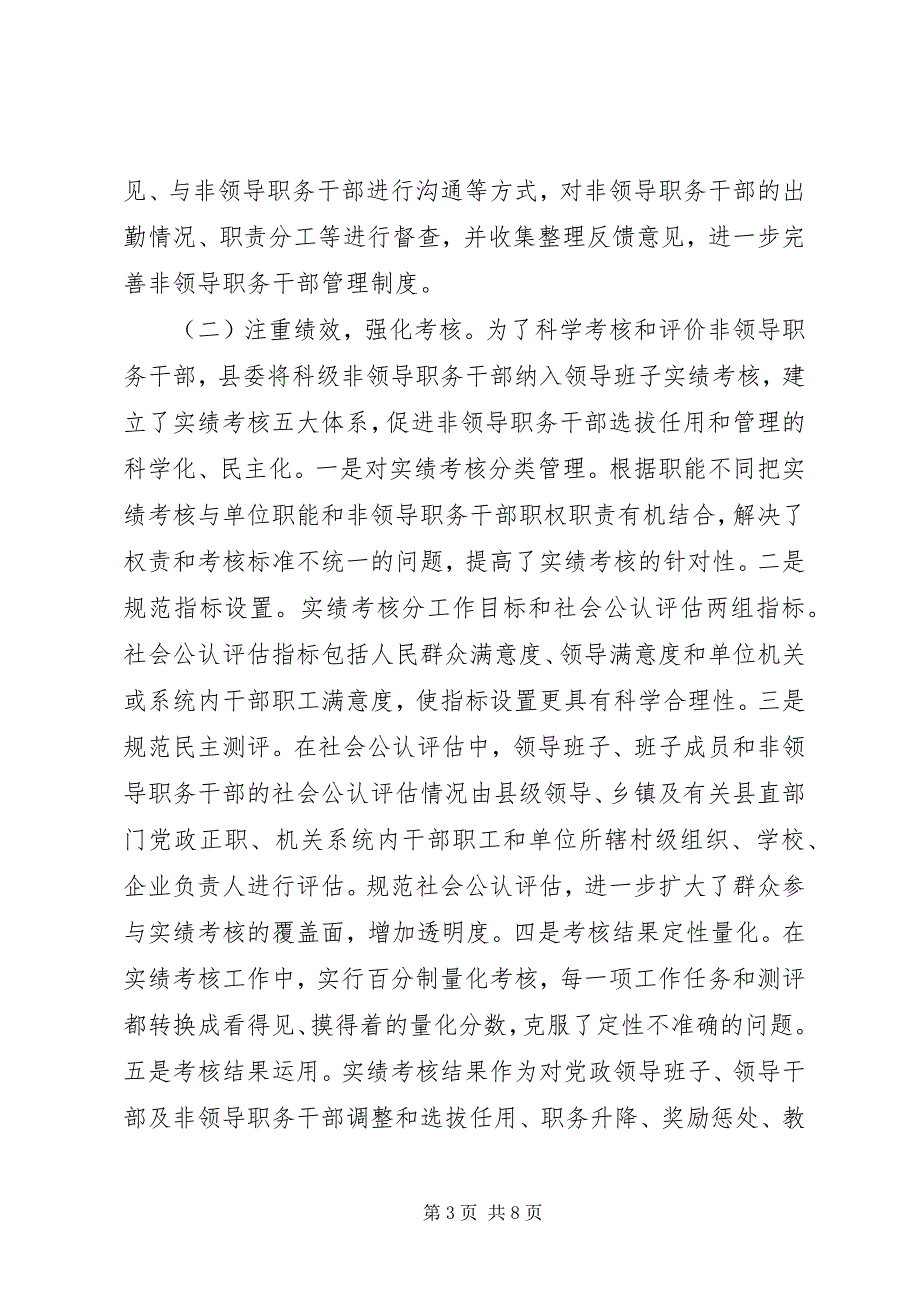 见、与非领导职务干部进行沟通等方式，对非领导职务干部的出
勤情况、职责分工等进行督查，并收集整理反馈意见，进一步完
善非领导职务干部管理制度。
（二）注重绩效，强化考核。为了科学考核和评价非领导职
务干部，县委将科级非领导职务干部纳入领导班子实绩考核，建
立了实绩考核五大体系，促进非领导职务干部选拔任用和管理的
科学化、民主化。一是对实绩考核分类管理。根据职能不同把实
绩考核与单位职能和非领导职务干部职权职责有机结合，解决了
权责和考核标准不统一的问题，提高了实绩考核的针对性。二是
规范指标设置。实绩考核分工作目标和社会公认评估两组指标。
社会公认评估指标包括人民群众满意度、领导满意度和单位机关
或系统内干部职工满意度，使指标设置更具有科学合理性。三是
规范民主测评。在社会公认评估中，领导班子、班子成员和非领
导职务干部的社会公认评估情况由县级领导、乡镇及有关县直部
门党政正职、机关系统内干部职工和单位所辖村级组织、学校、
企业负责人进行评估。规范社会公认评估，进一步扩大了群众参
与实绩考核的覆盖面，增加透明度。四是考核结果定性量化。在
实绩考核工作中，实行百分制量化考核，每一项工作任务和测评
都转换成看得见、摸得着的量化分数，克服了定性不准确的问题。
五是考核结果运用。实绩考核结果作为对党政领导班子、领导干
部及非领导职务干部调整和选拔任用、职务升降、奖励惩处、教
第 3 页 共 8 页